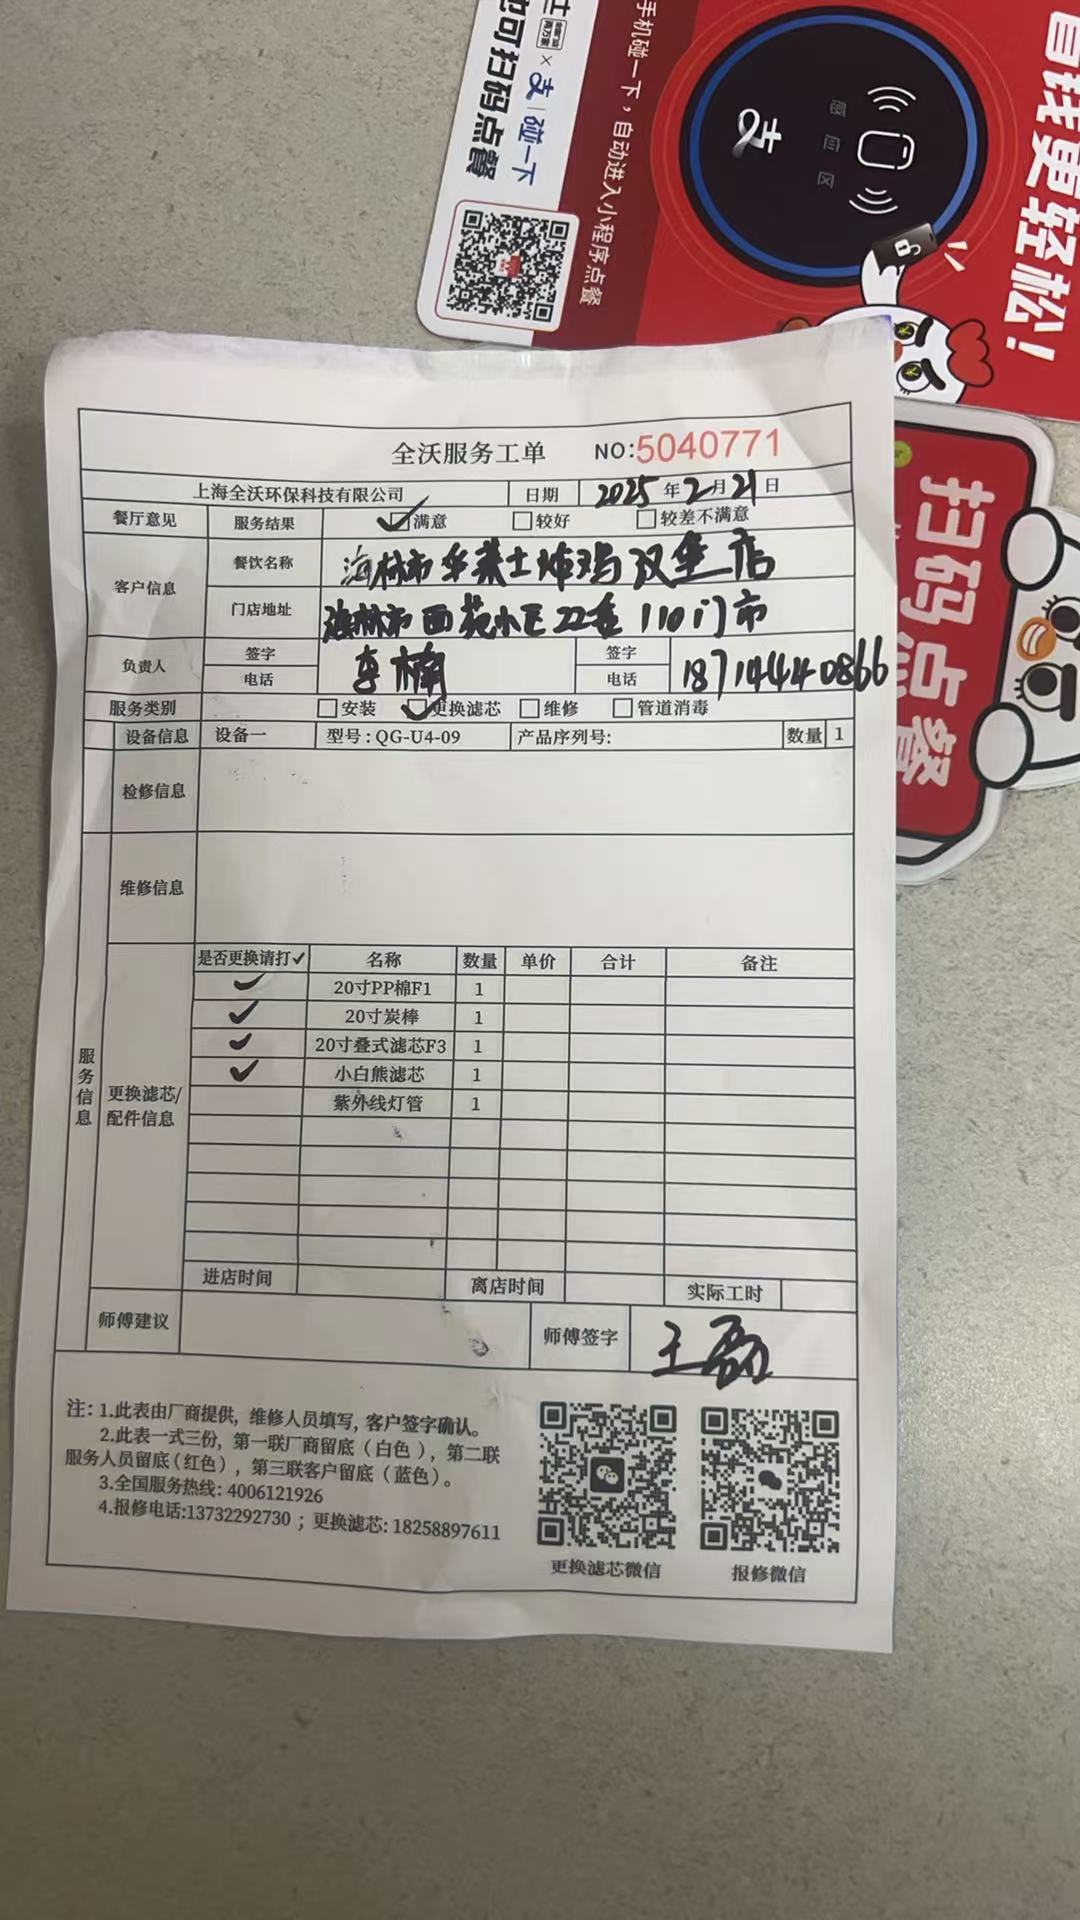 也可扫码点餐
支|碰一下
手机碰一下，自动进入小程序点餐
支
感应区
省钱更轻松！
扫码点餐
全沃服务工单 NO:5040771
上海全沃环保科技有限公司 日期 2025年2月21日
餐厅意见 服务结果 ✓满意 □较好 □较差不满意
客户信息 餐饮名称 海林市华莱士炸鸡汉堡店
门店地址 海林市西苑小区22委110门市
负责人 签字 李楠 签字
电话 电话 18714440866
服务类别 □安装 ✓更换滤芯 □维修 □管道消毒
设备信息 设备一 型号:QG-U4-09 产品序列号: 数量 1
检修信息
维修信息
服务信息
更换滤芯/配件信息
是否更换请打✓ 名称 数量 单价 合计 备注
✓ 20寸PP棉F1 1
✓ 20寸炭棒 1
✓ 20寸叠式滤芯F3 1
✓ 小白熊滤芯 1
紫外线灯管 1
进店时间 离店时间 实际工时
师傅建议 师傅签字 王磊
注: 1.此表由厂商提供, 维修人员填写, 客户签字确认。
2.此表一式三份, 第一联厂商留底（白色）, 第二联
服务人员留底(红色), 第三联客户留底（蓝色）。
3.全国服务热线: 4006121926
4.报修电话:13732292730 ; 更换滤芯: 18258897611
更换滤芯微信 报修微信